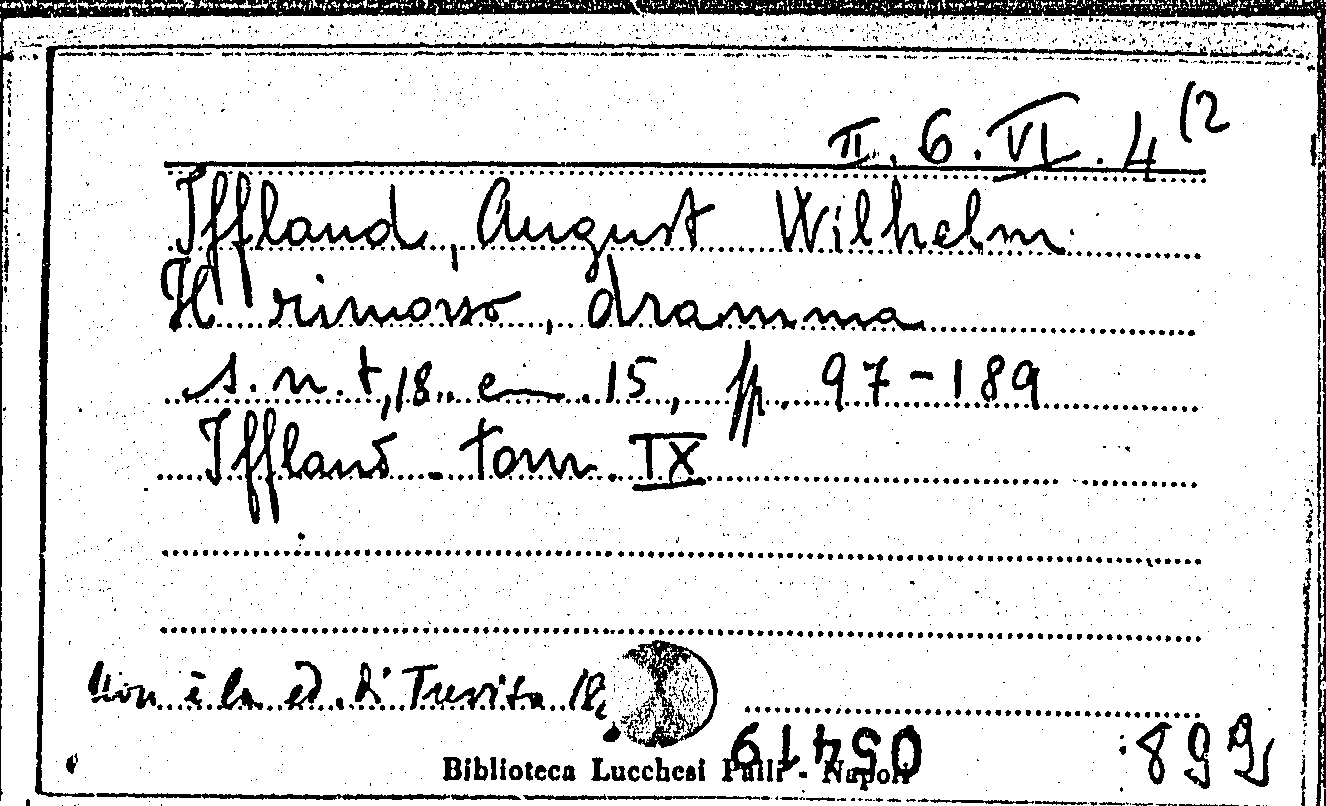 II. 6. VI. 4 (2
Iffland, August Wilhelm
Il rimorso, dramma
s.n.t, 18.. cm. 15, pp. 97-189
Iffland. tom. IX
Non è la ed. di
Biblioteca Lucchesi Palli - Napoli
05419